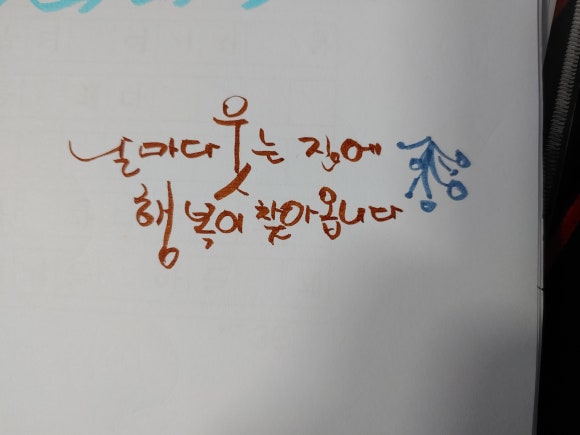 날마다 웃는 집에
행복이 찾아옵니다